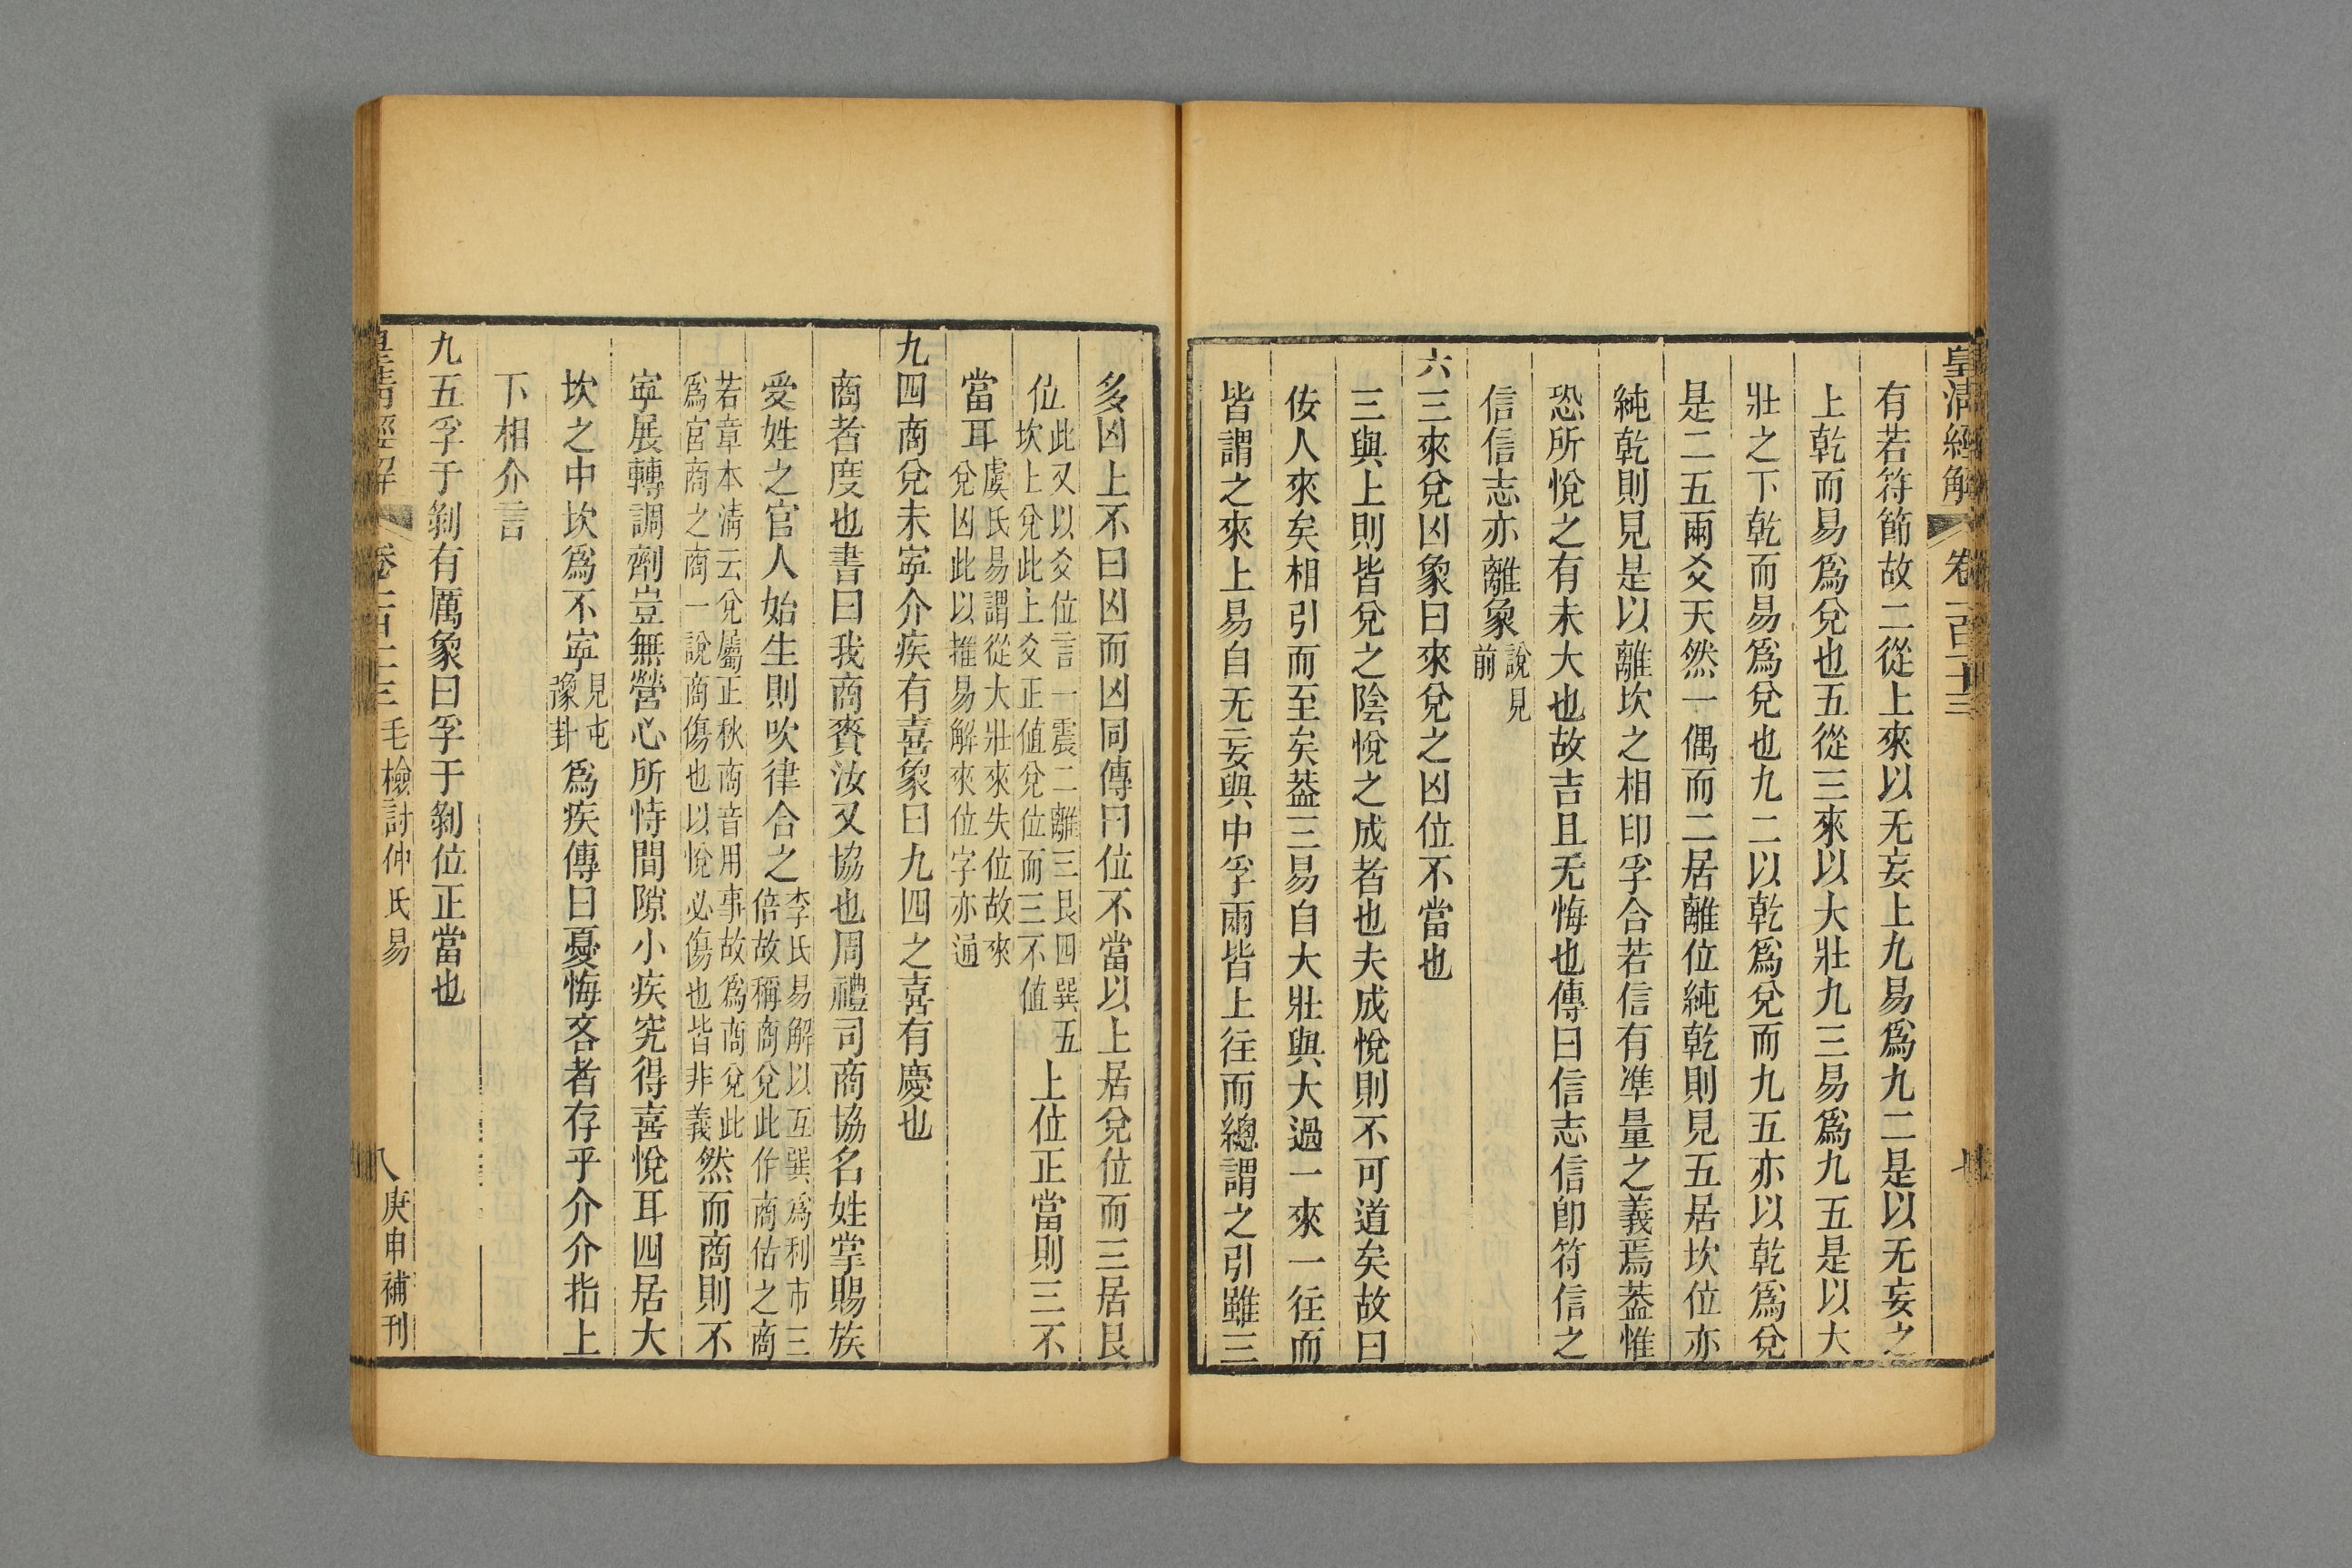 皇清經解 卷一百十三 七
有若符節故二從上來以无妄上九易爲九二是以无妄之
上乾而易爲兌也五從三來以大壯九三易爲九五是以大
壯之下乾而易爲兌也九二以乾爲兌而九五亦以乾爲兌
是二五兩爻天然一偶而二居離位純乾則見五居坎位亦
純乾則見是以離坎之相印孚合若信有準量之義焉葢惟
恐所悅之有未大也故吉且无悔也傳曰信志信卽符信之
信信志亦離象說見前
六三來兌凶象曰來兌之凶位不當也
三與上則皆兌之陰悅之成者也夫成悅則不可道矣故曰
侫人來矣相引而至矣葢三易自大壯與大過一來一往而
皆謂之來上易自无妄與中孚兩皆上往而總謂之引雖三
多凶上不曰凶而凶同傳曰位不當以上居兌位而三居艮
位此又以爻位言一震二離三艮四巽五坎上兌此上爻正值兌位而三不值上位正當則三不
當耳虞氏易謂從大壯來失位故來兌凶此以推易解來位字亦通
九四商兌未寧介疾有喜象曰九四之喜有慶也
商者度也書曰我商賚汝又協也周禮司商協名姓掌賜族
受姓之官人始生則吹律合之李氏易解以互巽爲利市三倍故稱商兌此作商估之商
若章本淸云兌屬正秋商音用事故爲商兌此爲宮商之商一說商傷也以悅必傷也皆非義然而商則不
寧展轉調劑豈無營心所恃間隙小疾究得喜悅耳四居大
坎之中坎爲不寧見屯豫卦爲疾傳曰憂悔吝者存乎介介指上
下相介言
九五孚于剝有厲象曰孚于剝位正當也
皇清經解 卷一百十三 毛檢討仲氏易 八 庚申補刊